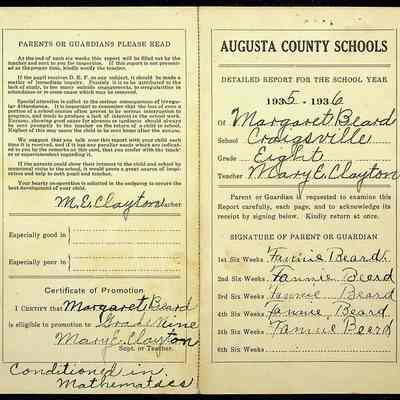 PARENTS OR GUARDIANS PLEASE READ
At the end of each six weeks this report will be filled out by the
teacher and sent to you for inspection. If this report is not presented
as the proper date, kindly notify the teacher.
If the pupil receives D. E. F. on any subject, it should be made a
matter of immediate inquiry. Possibly it is to be attributed to the
lack of study, to too many outside engagements, to irregularities in
attendance or to some cause which may be removed.
Special attention is called to the serious consequences of irregular
Attendance. It is important to remember that the loss of even a
portion of a school session often proves to be serious interruption to
progress, and tends to produce a lack of interest in the school work.
Excuses, showing good cause for absence or tardiness should always
be sent promptly to the teacher upon the return of a child to school.
Neglect of this may cause the child to be sent home after the excuse.
We suggest that you talk over this report with your child each
time it is received, and if it has any peculiar needs which are indicated
to you by the remarks at this card, that you confer with the teacher
or superintendent regarding it.
If the parents could show their interest in the child and school by
occasional visits to the school, it would prove a great source of inspiration
and help to both pupil and teacher.
Your hearty co-operation is solicited in the endeavor to secure the
best development of your child.
M.E. Clayton Teacher
Especially good in
Especially poor in
Certificate of Promotion
I CERTIFY that Margaret Beard
is eligible to promotion to Grade Nine
Mary E. Clayton
Supt. or Teacher.
Conditioned in
Mathematics
AUGUSTA COUNTY SCHOOLS
DETAILED REPORT FOR THE SCHOOL YEAR
1935 - 1936
Of Margaret Beard
School Craigsville
Grade Eight
Teacher Mary E. Clayton
Parent or Guardian is requested to examine this
Report carefully, each page, and to acknowledge its
receipt by signing below. Kindly return at once.
SIGNATURE OF PARENT OR GUARDIAN
1st Six Weeks Fannie Beard
2nd Six Weeks Fannie Beard
3rd Six Weeks Fannie Beard
4th Six Weeks Fannie Beard
5th Six Weeks Fannie Beard
6th Six Weeks